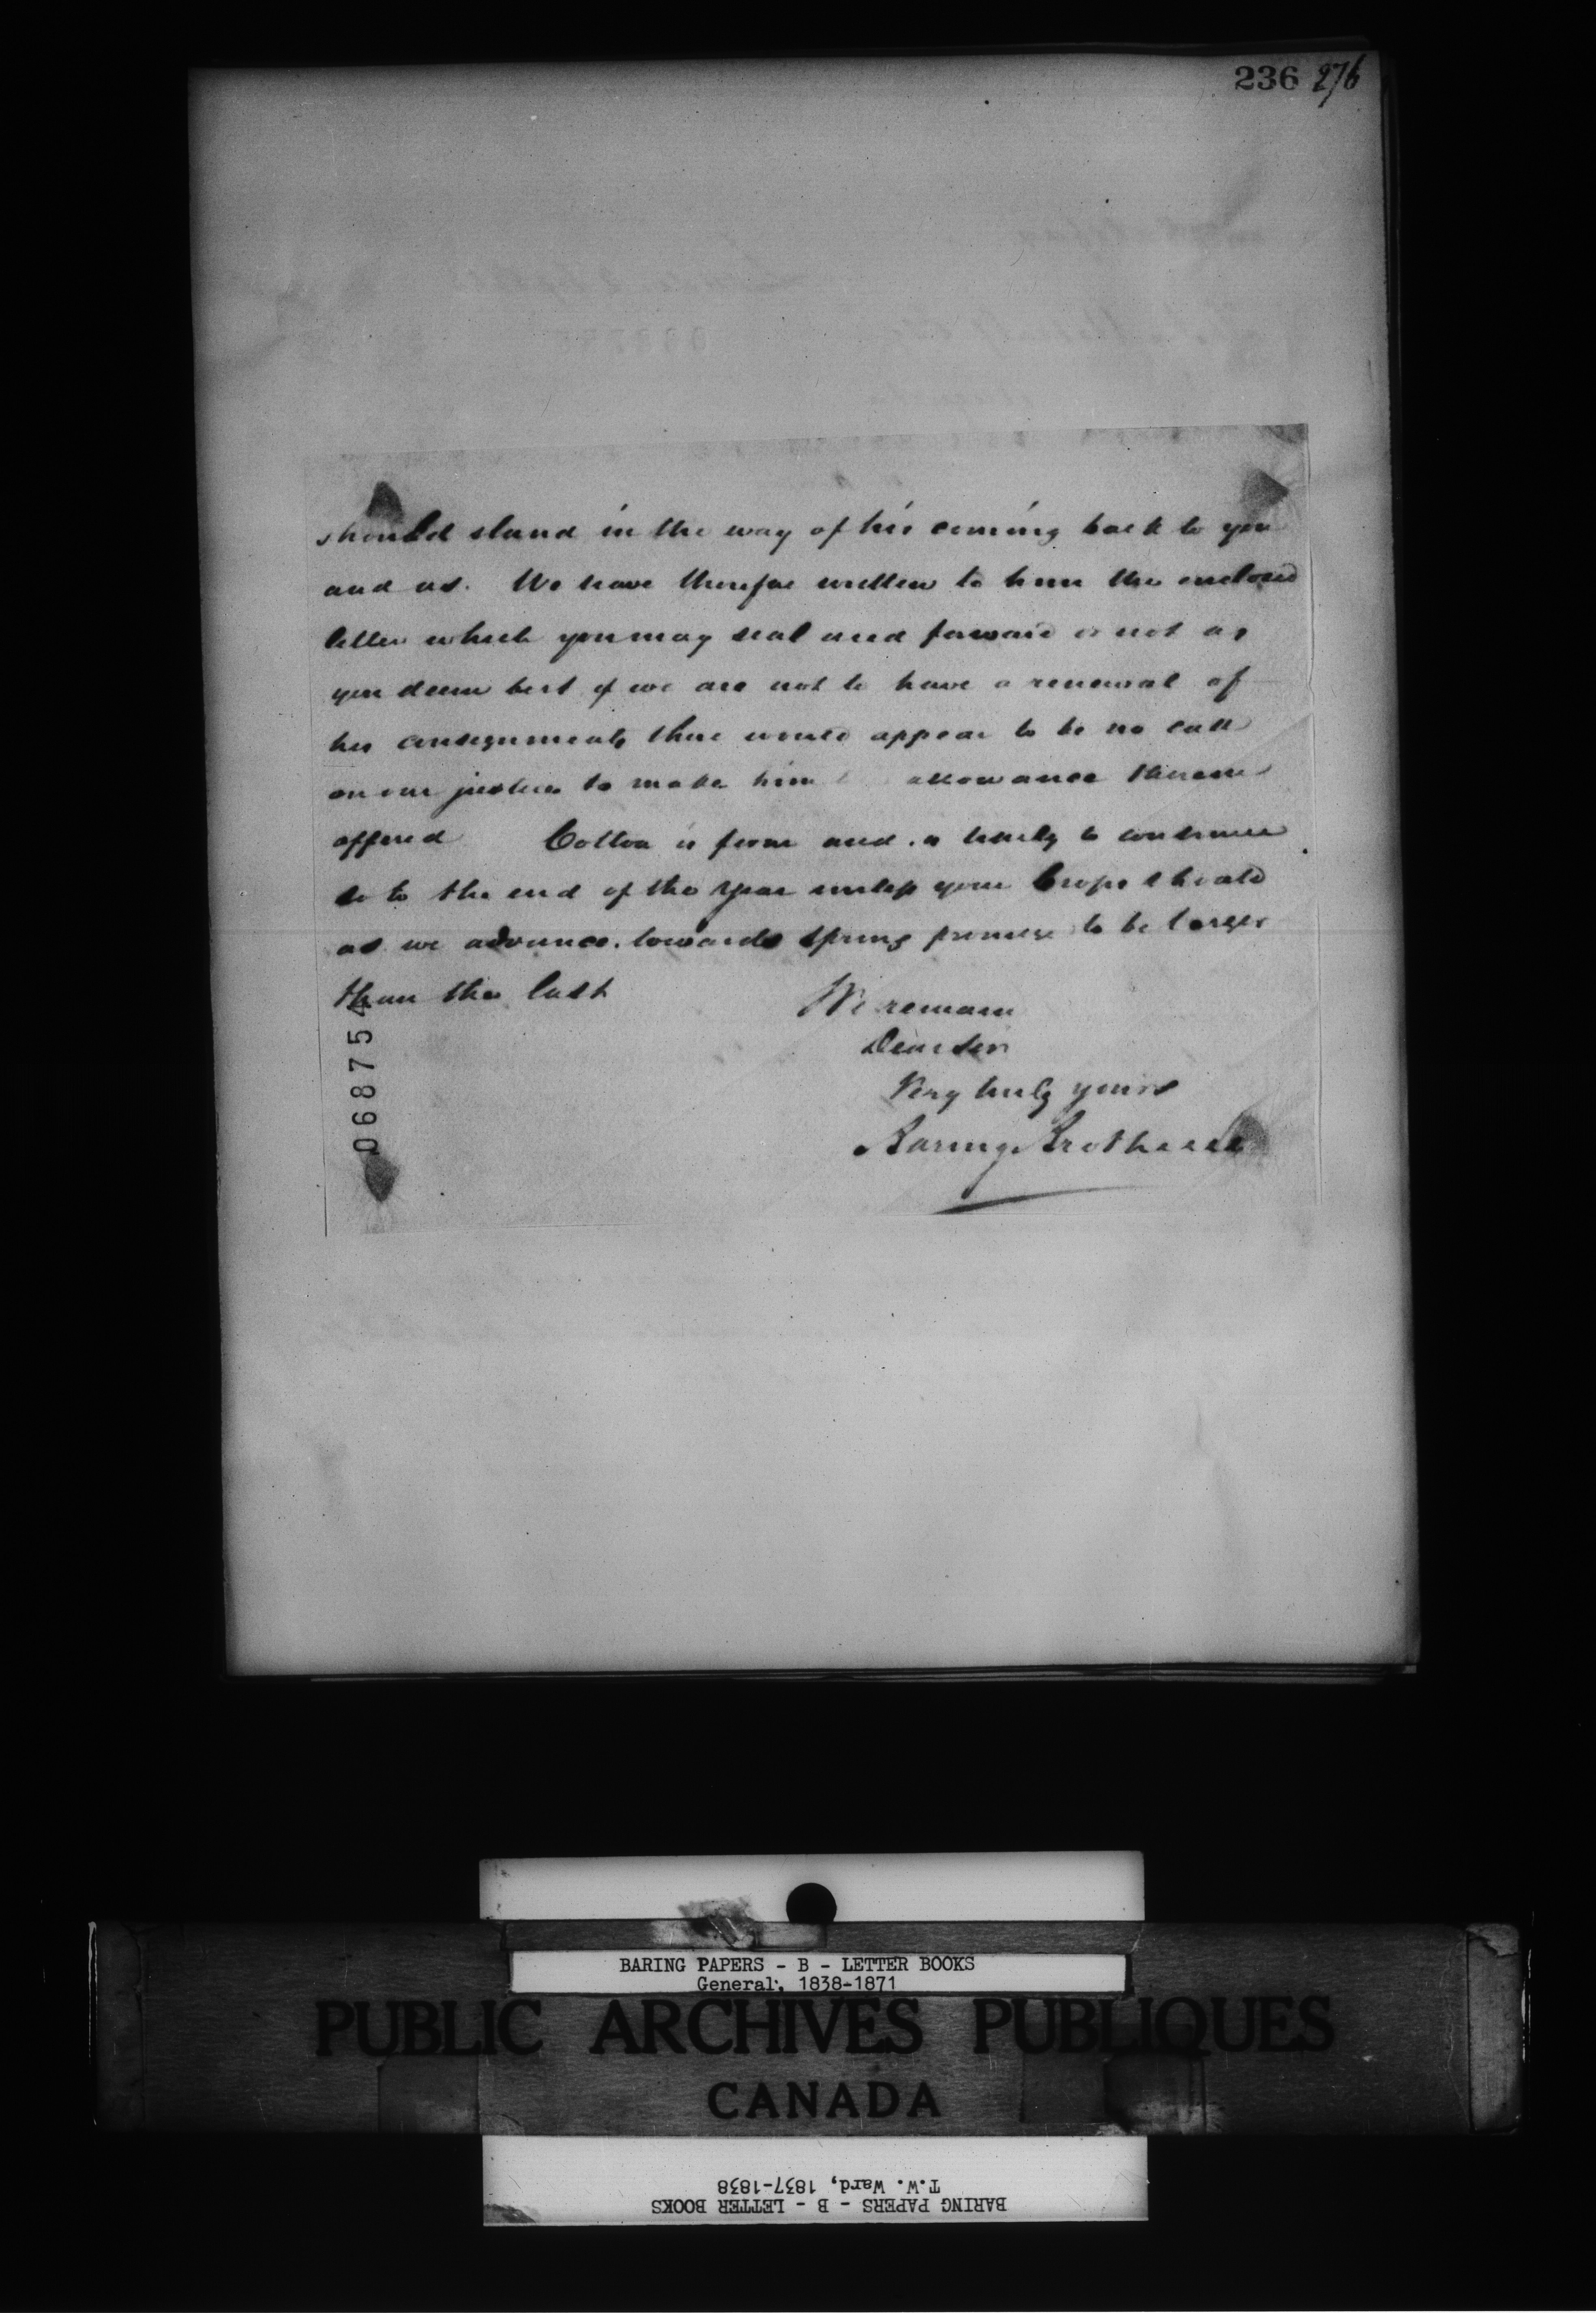 236 276
should stand in the way of his coming back to you
and us. We have therefore written to him the enclosed
letter which you may seal and forward or not as
you deem best if we are not to have a renewal of
his consignments there would appear to be no call
on our justice to make him allowance therein
offered Cotton is firm and is likely to continue
so to the end of the year unless your Crops should
as we advance towards Spring promise to be larger
than the last
We remain
Dear Sir
Very truly yours
Baring Brothers &
068754
BARING PAPERS - B - LETTER BOOKS
General, 1838-1871
PUBLIC ARCHIVES PUBLIQUES
CANADA
BARING PAPERS - B - LETTER BOOKS
T.W. Ward, 1837-1838